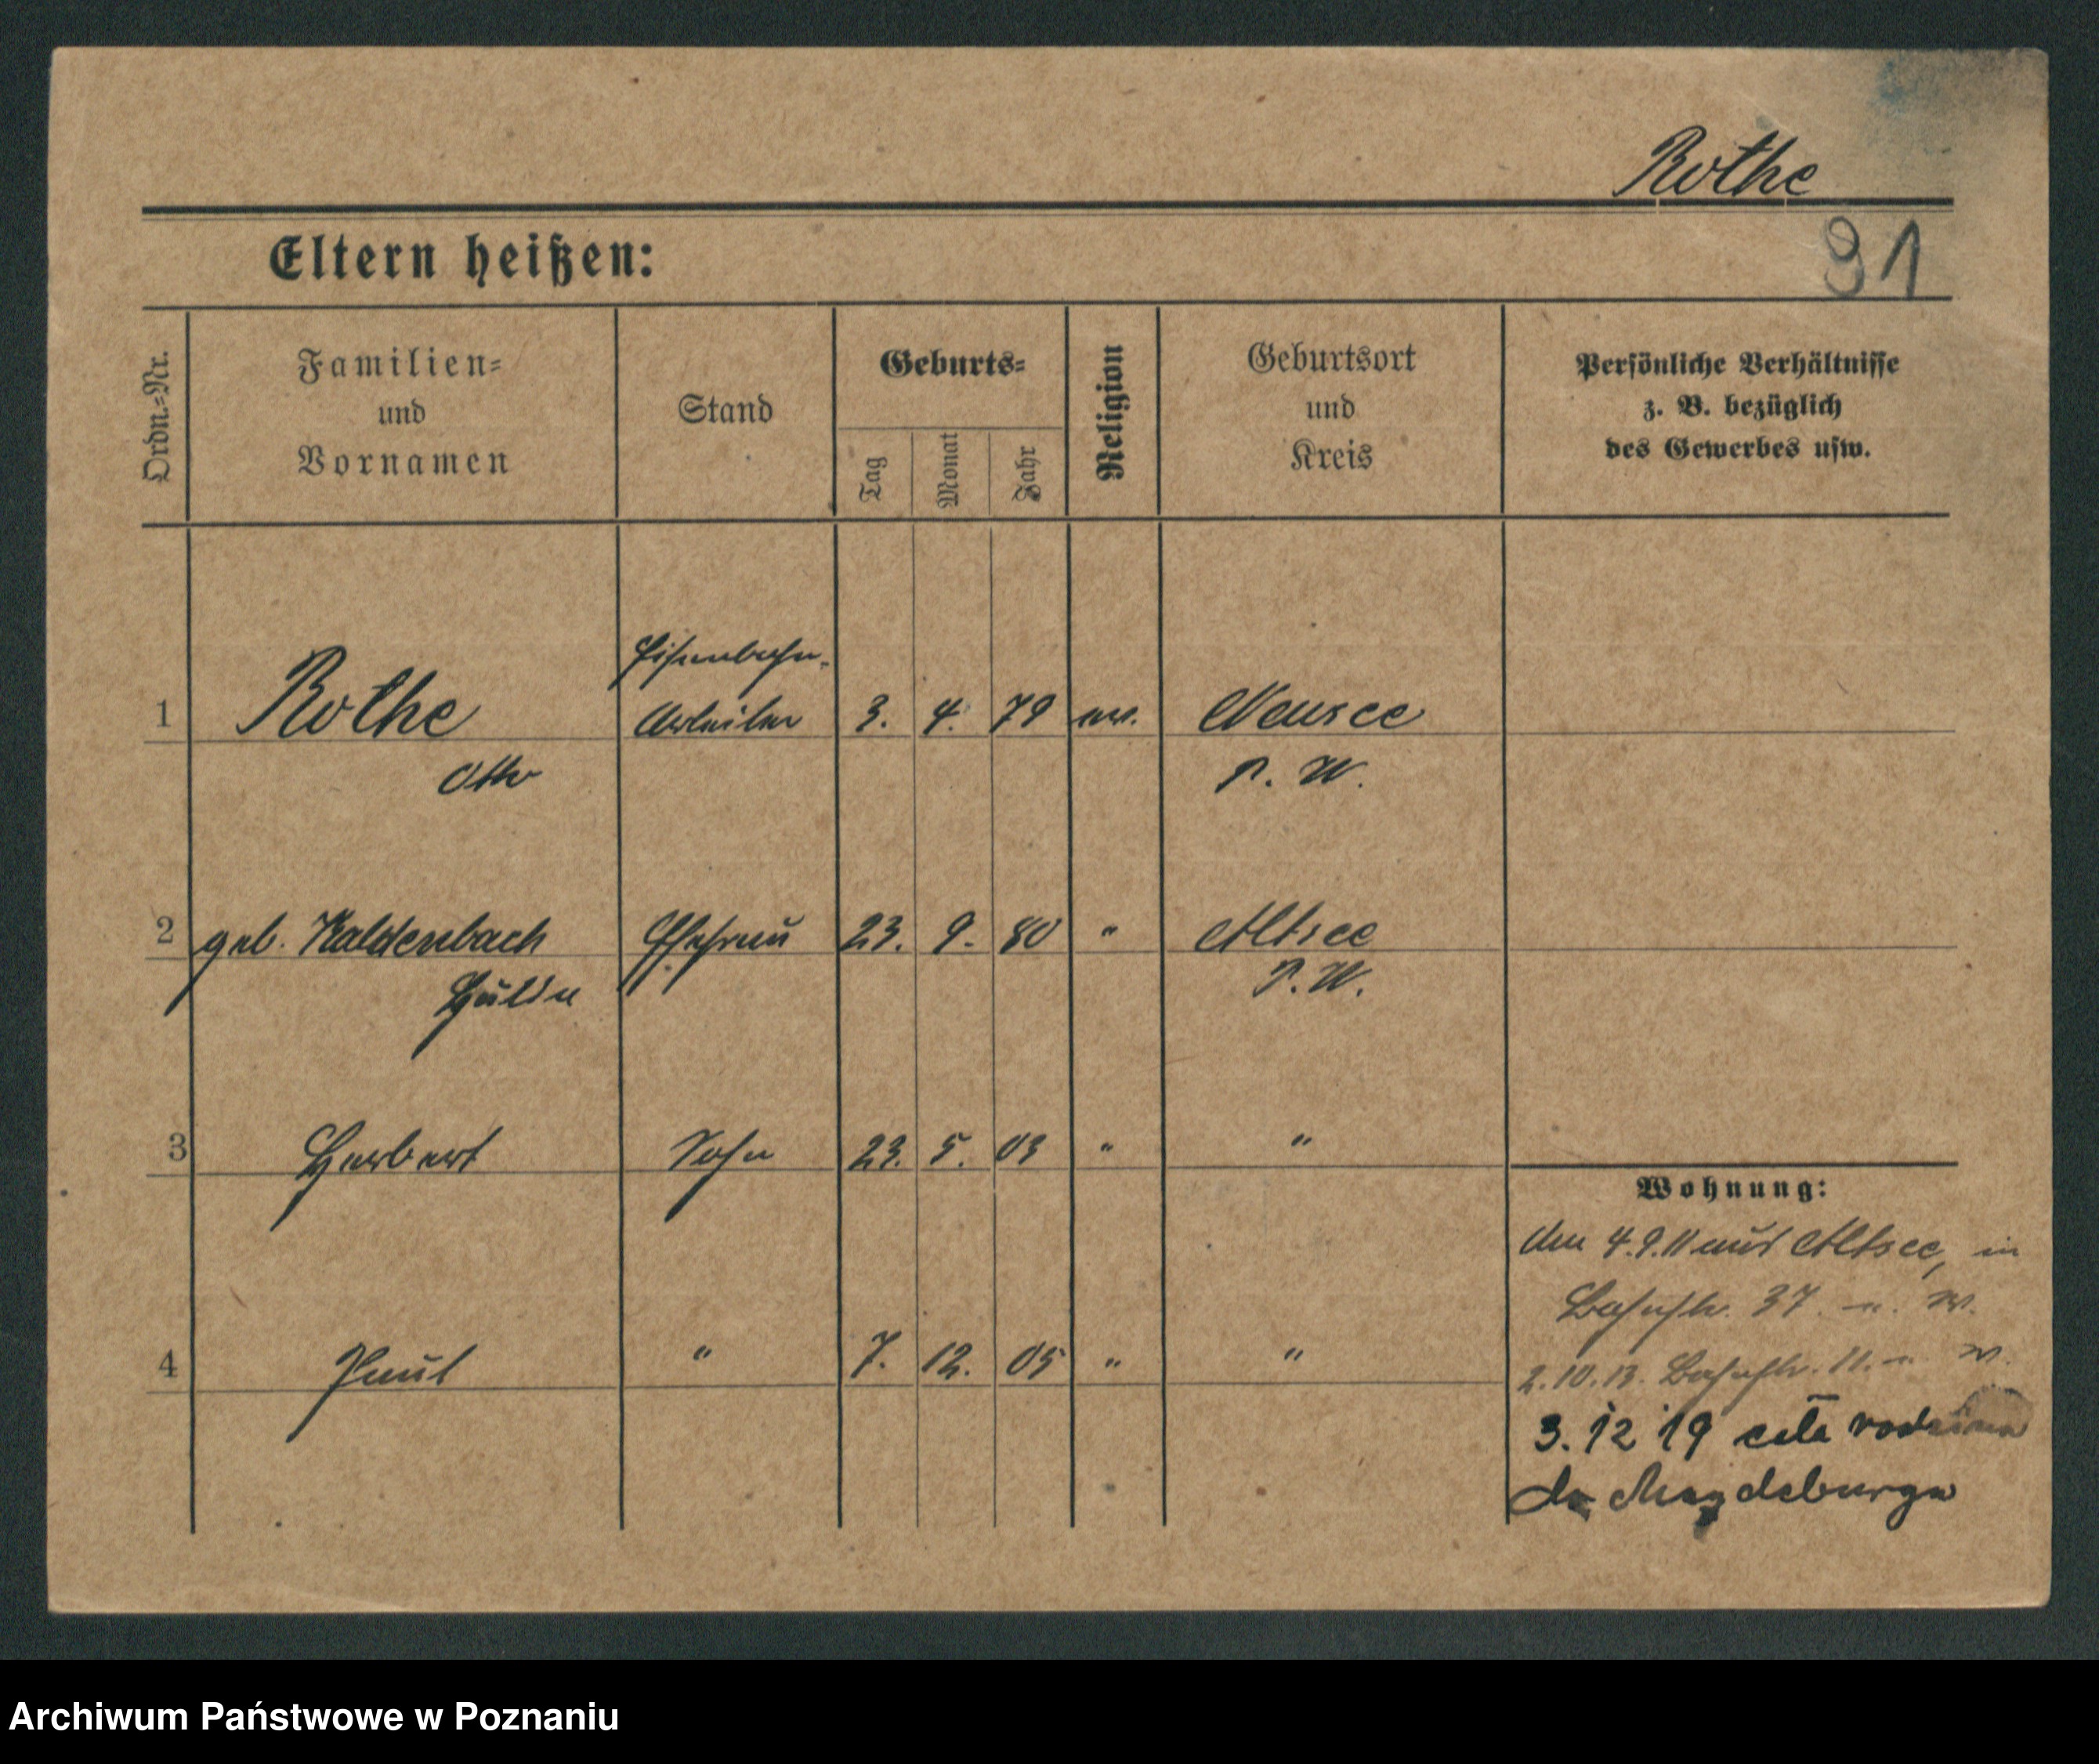 Rothe
91
Eltern heißen:
Ordn.-Nr.
Familien-
und
Vornamen
Stand
Geburts-
Tag
Monat
Jahr
Religion
Geburtsort
und
Kreis
Persönliche Verhältnisse
z. B. bezüglich
des Gewerbes usw.
Eisenbahn-
1 Rothe Arbeiter 3. 4. 79 ev. Neusee
Otto P. W.
2 geb. Kaldenbach Ehefrau 23. 9. 80 " Altsee
Hulda P. W.
3 Herbert Sohn 23. 5. 03 " "
Wohnung:
den 4.9.11 aus Altsee, in
Bahnstr. 37
4 Paul " 7. 12. 05 " "
2.10.13. Bahnstr. 11.
3.12 19 cała rodzina
do Magdeburga
Archiwum Państwowe w Poznaniu